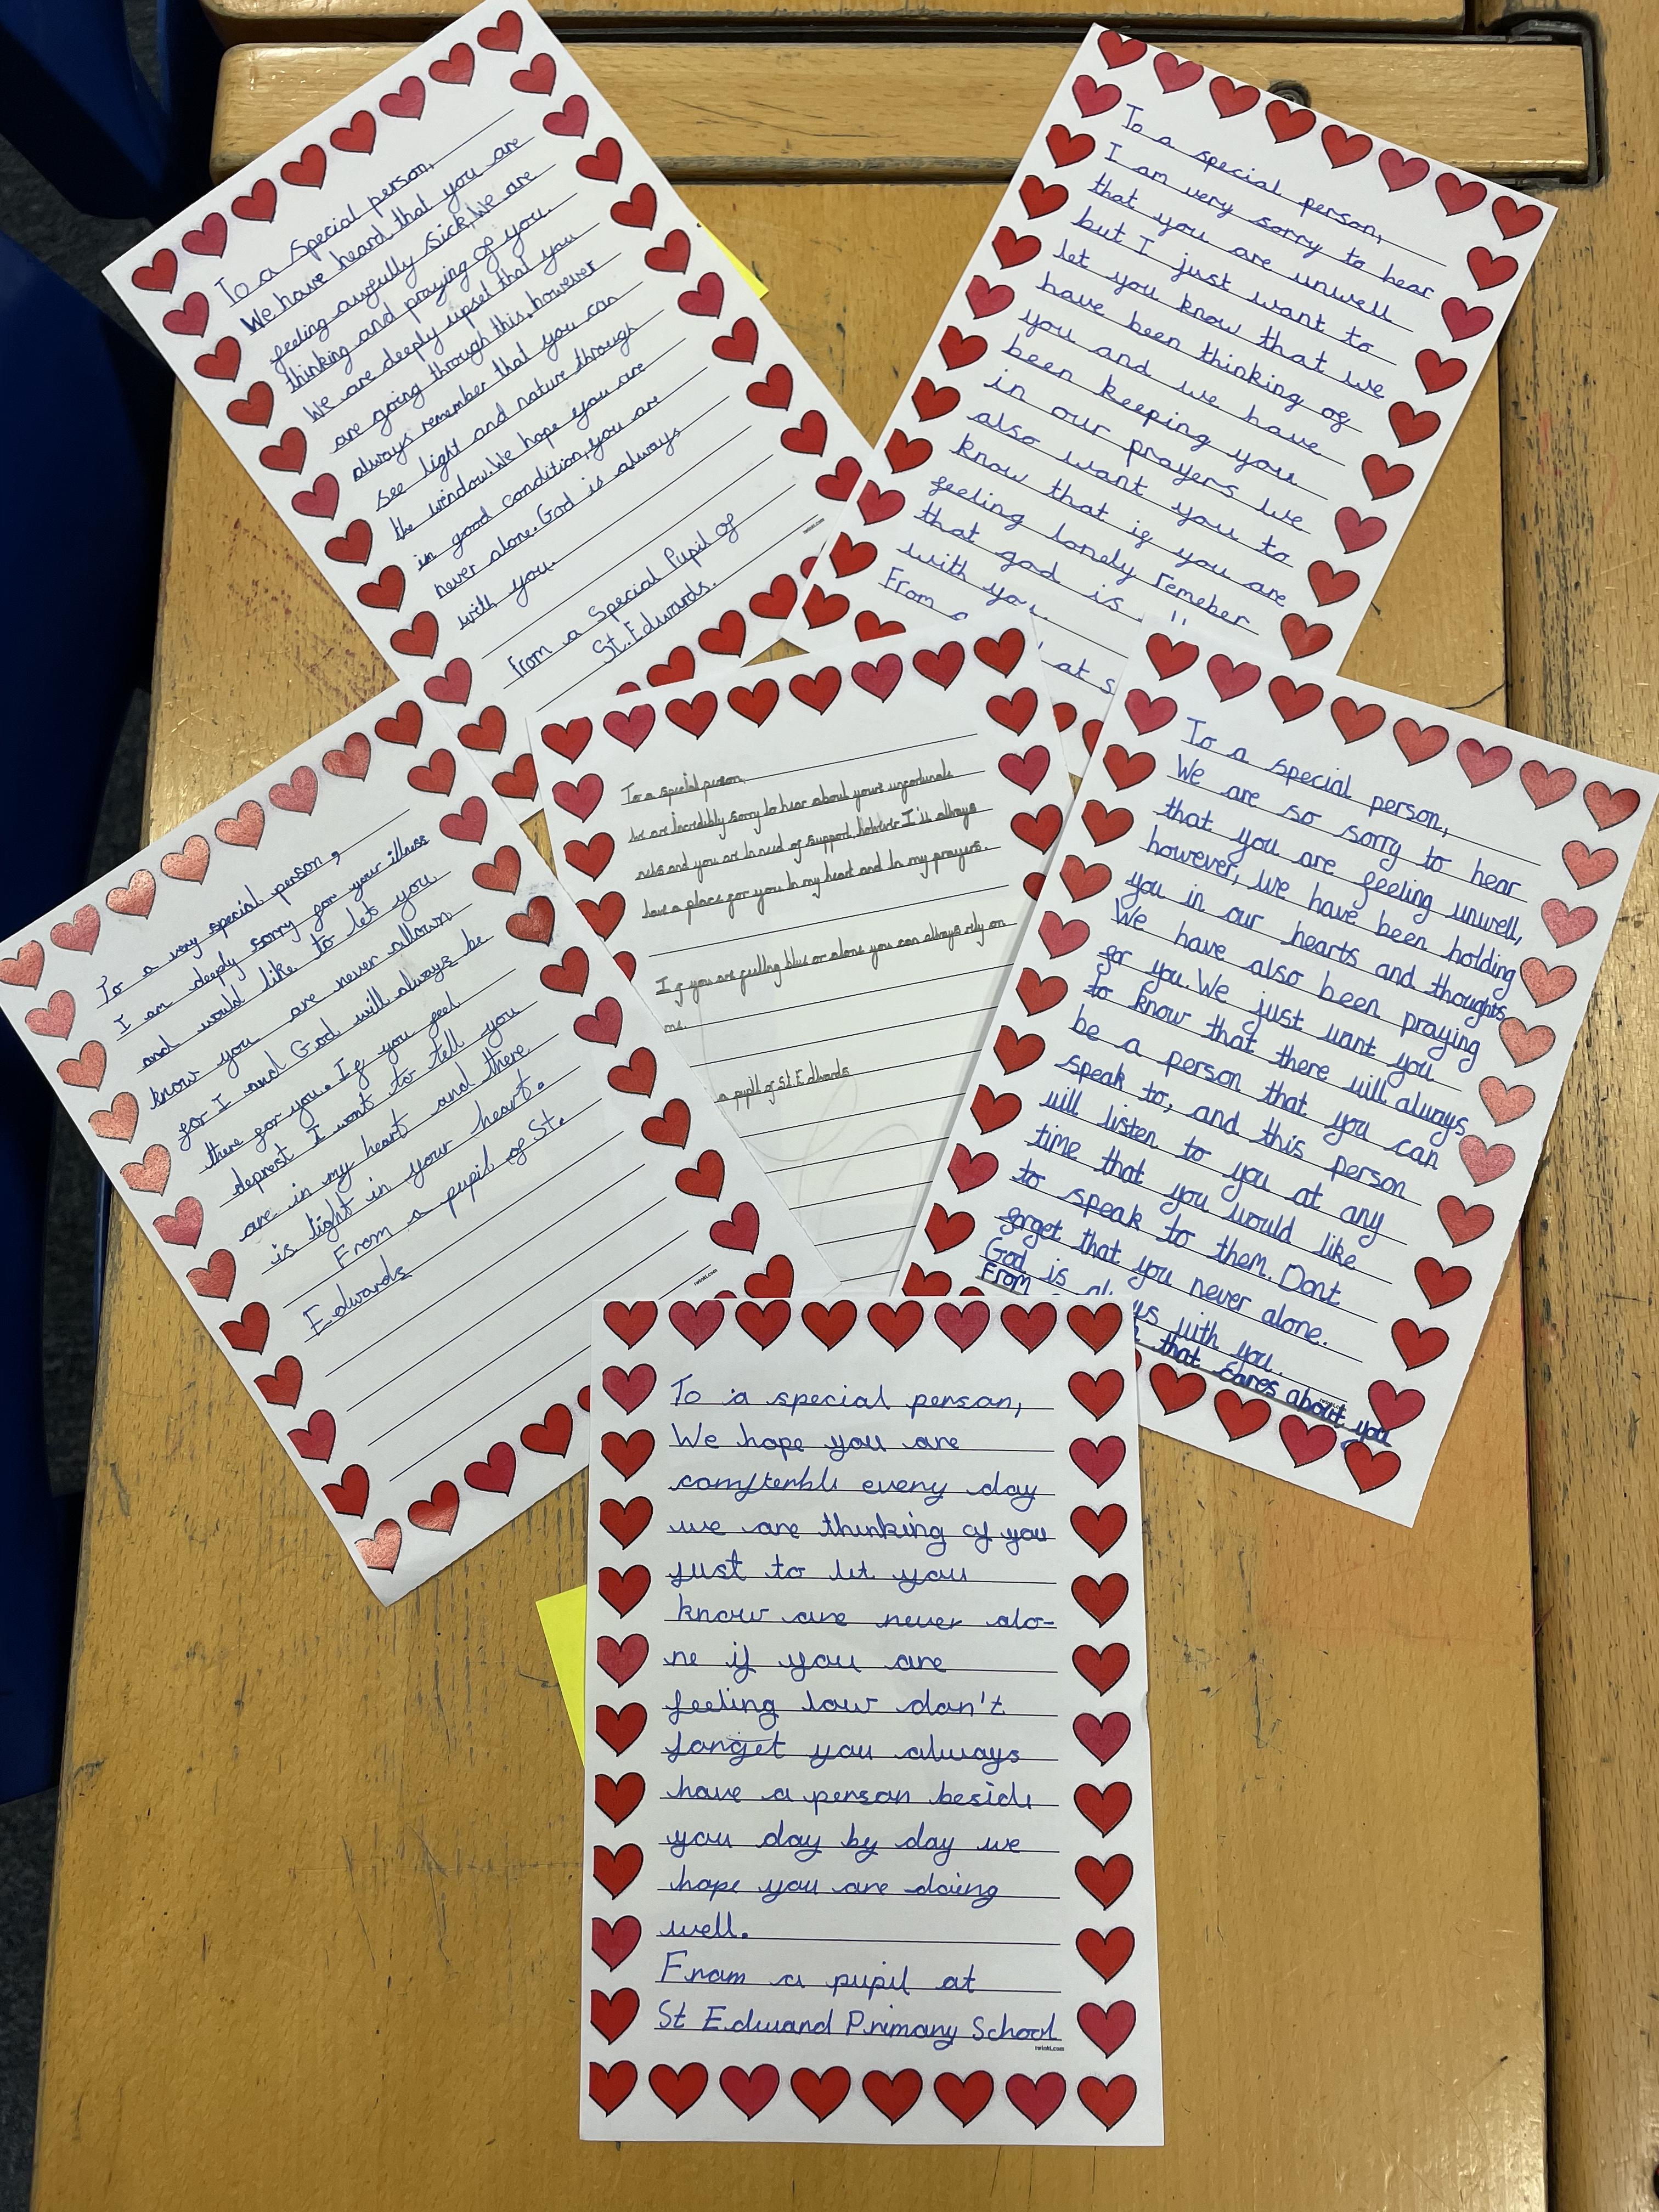 To a special person,
We have heard that you are
feeling awfully sick, We are
thinking and praying of you.
We are deeply upset that you
are going through this, however
always remember that you can
see light and nature through
the window. We hope you are
in good condition, you are
never alone. God is always
with you.
From a Special Pupil of
St. Edwards.
twinkl.com
To a special person,
I am very sorry to hear
that you are unwell
but I just want to
let you know that we
have been thinking of
you and we have
been keeping you
in our prayers we
also want you to
know that if you are
feeling lonely remeber
that god is
with yo
From a
at s
To a very special person,
I am deeply sorry for your illness
and would like to let you
know you are never allown
for I and God will always be
there for you. If you feel
deprest I want to tell you
are in my heart and there
is light in your heart.
From a pupil of St.
Edwards
twinkl.com
To a special person,
We are incredibly sorry to hear about your unfortunate
news and you are in need of support, however I'll always
have a place for you in my heart and in my prayers.
If you are feeling blue or alone you can always rely on
me.
a pupil of St. Edwards
To a special person,
We are so sorry to hear
that you are feeling unwell,
however, we have been holding
you in our hearts and thoughts.
We have also been praying
for you. We just want you
to know that there will always
be a person that you can
speak to, and this person
will listen to you at any
time that you would like
to speak to them. Dont
forget that you never alone.
God is with you.
From that cares about you
To a special person,
We hope you are
comfterble every day
we are thinking of you
just to let you
know are never alo-
ne if you are
feeling low don't
forget you always
have a person beside
you day by day we
hope you are doing
well.
From a pupil at
St Edward Primary School
twinkl.com